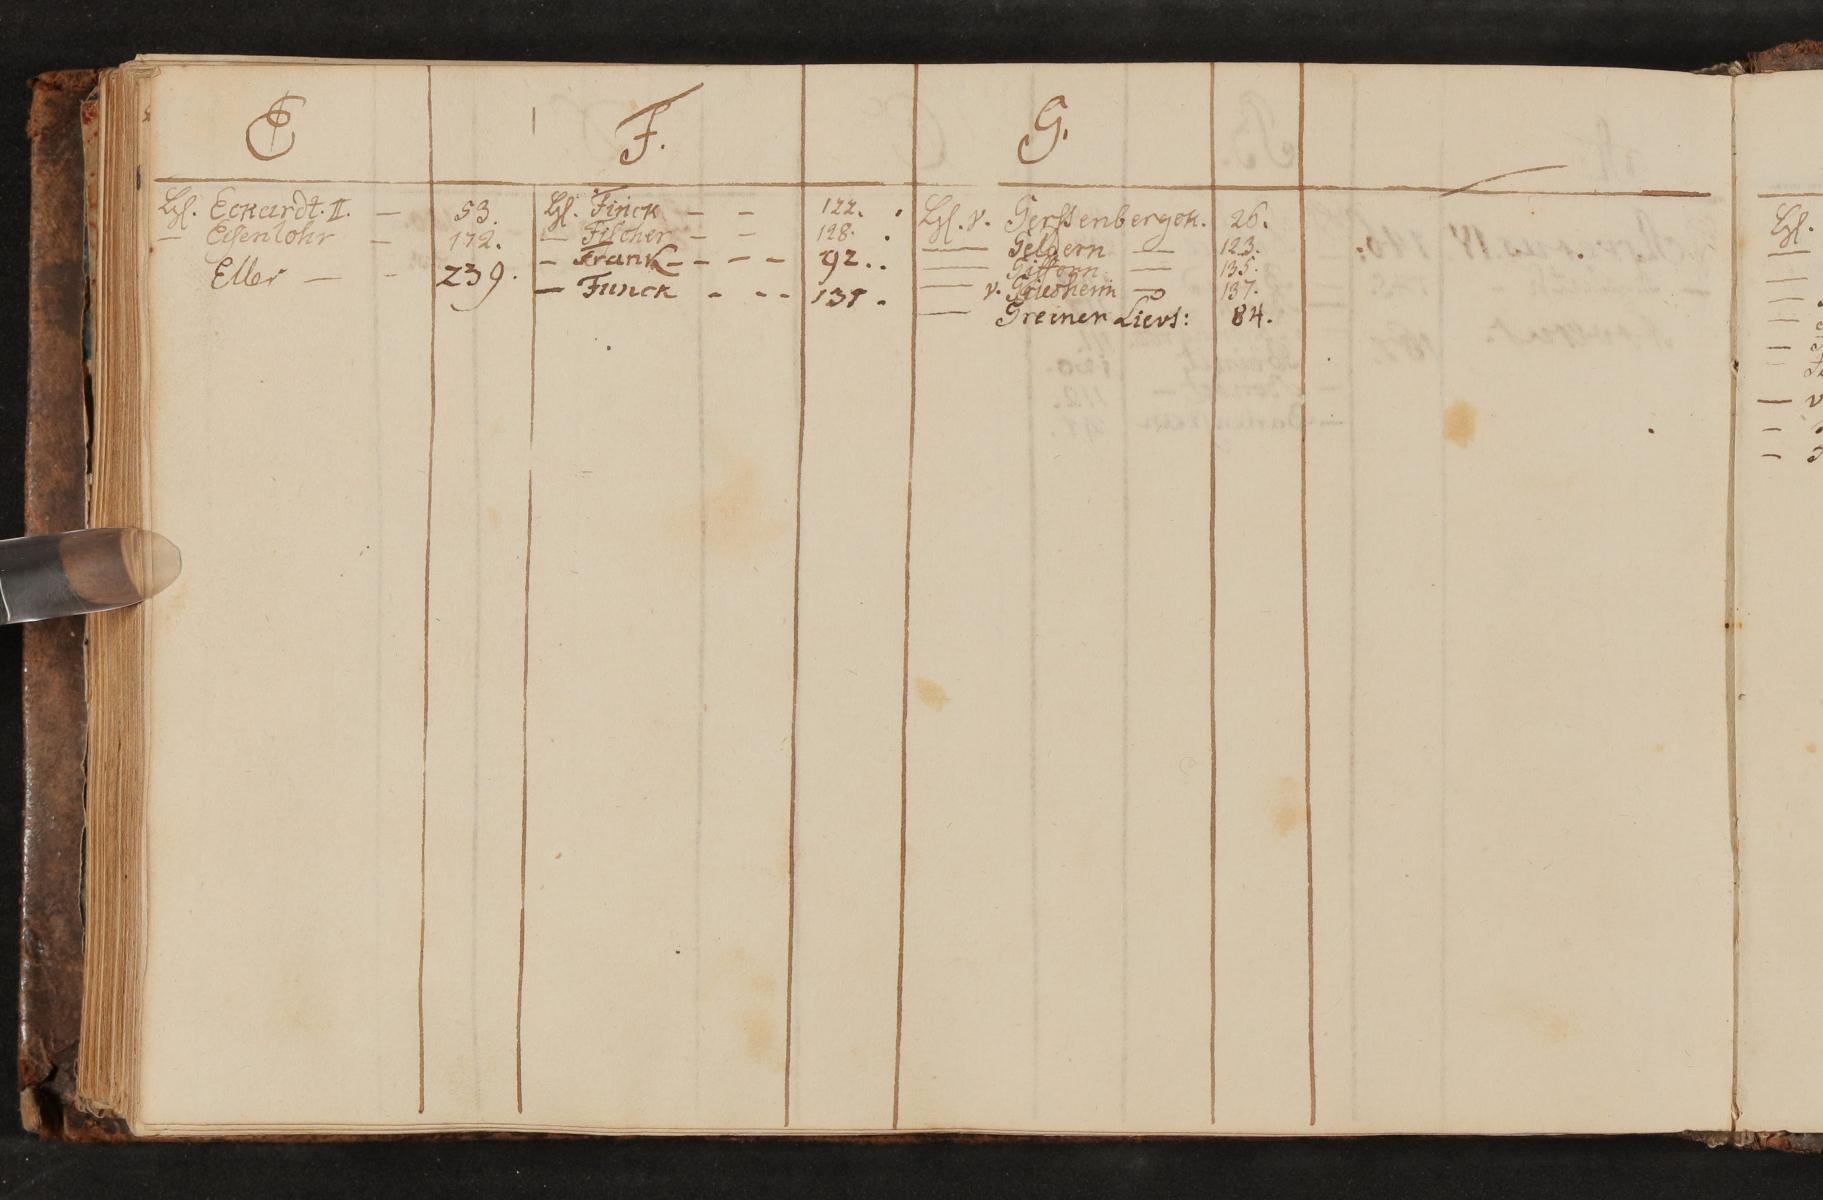 E
Hl. Eckardt. II. — 53.
— Eisenlohr — 172.
Eller — - 239.
F.
Hl. Finck — — 122.
— Fischer — — 128.
— Frank — - - - 92.
— Funck - - - 131.
G.
Hl. v. Gerstenbergok. 26.
— Geldern — 123.
— — 135.
— v. Griesheim — 137.
— Greiner Lievt: 84.
Hl.